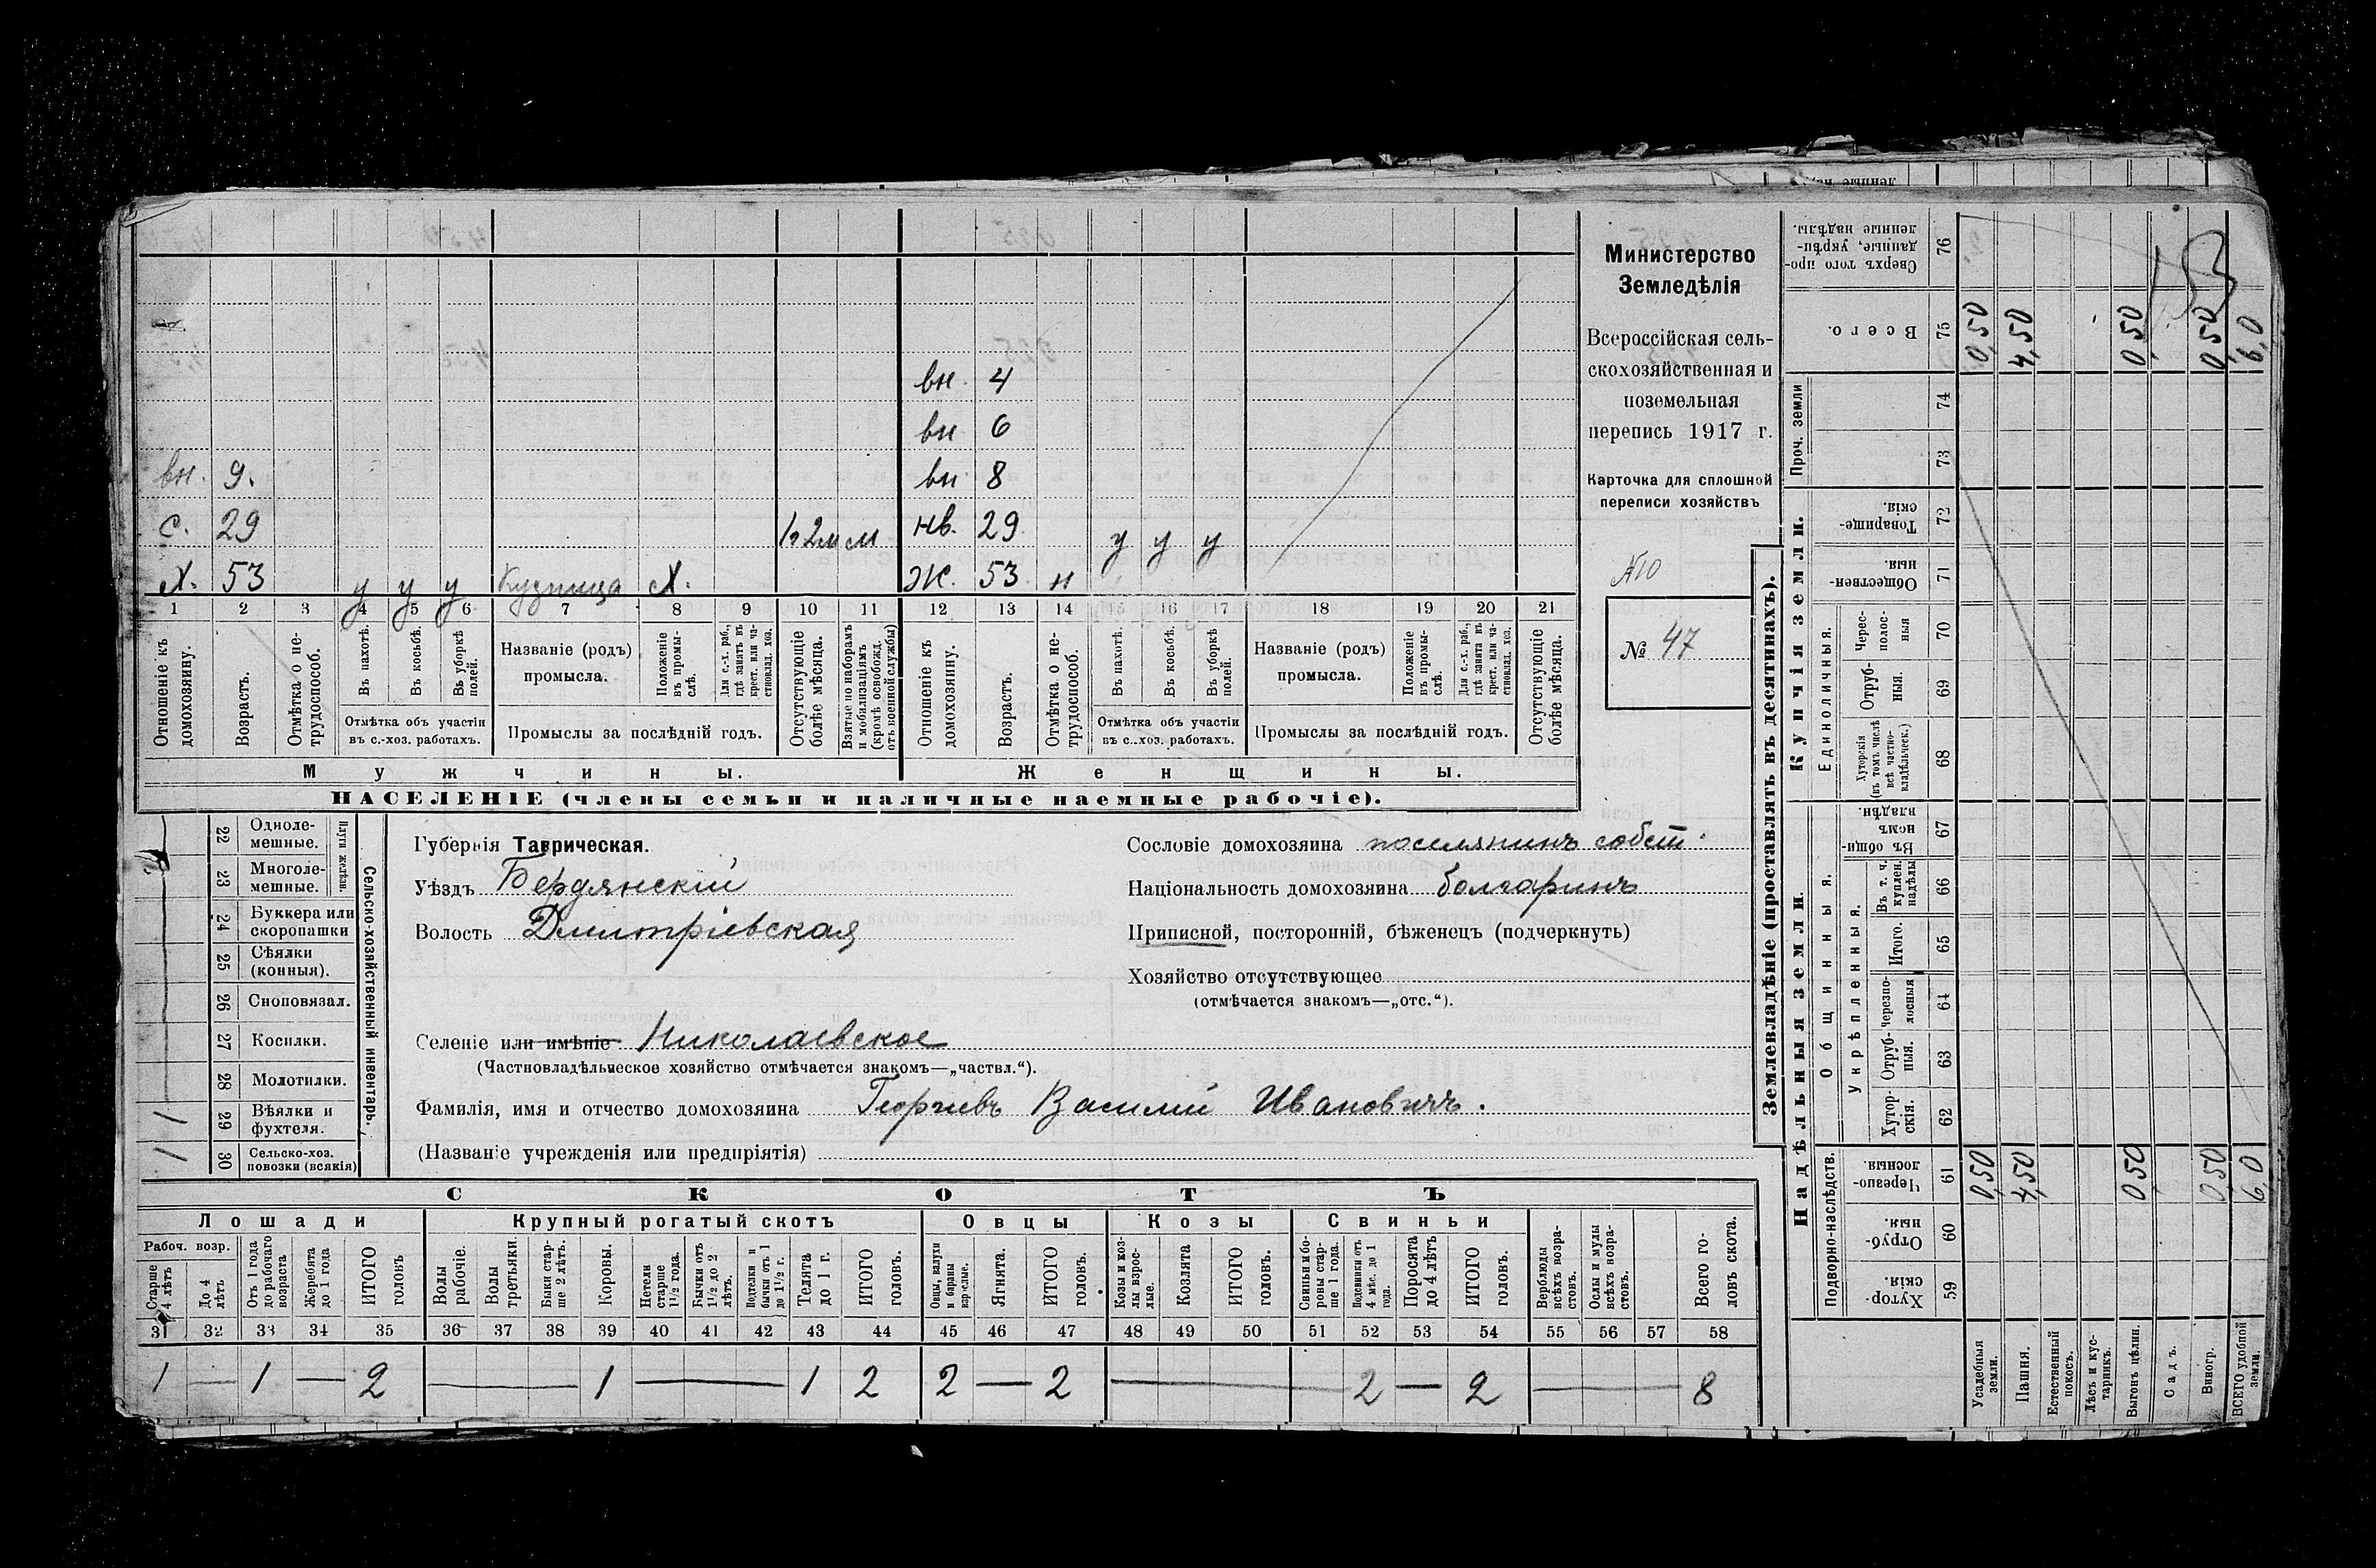 вн. 4
вн 6
вн. 9. вн 8
с. 29 м нв. 29 у у у
Х. 53 у у у Кузница Х. Ж. 53 н
1 2 3 4 5 6 7 8 9 10 11 12 13 14 15 16 17 18 19 20 21
Отношеніе къ домохозяину.
Возрастъ.
Отмѣтка о не-трудоспособ.
Въ пахотѣ.
Въ косьбѣ.
Въ уборкѣ полей.
Отмѣтка объ участіи
въ с.-хоз. работахъ.
Названіе (родъ)
промысла.
Положеніе въ промы-слѣ.
Для с.-х. раб., гдѣ занятъ въ крест. или ча-стновлад. хоз.
Промыслы за послѣдній годъ.
Отсутствующіе болѣе мѣсяца.
Взятые по наборамъ и мобилизаціямъ (кромѣ освобожд. отъ военной службы)
Отношеніе къ домохозяину.
Возрастъ.
Отмѣтка о не-трудоспособ.
Въ пахотѣ.
Въ косьбѣ.
Въ уборкѣ полей.
Отмѣтка объ участіи
въ с.-хоз. работахъ.
Названіе (родъ)
промысла.
Положеніе въ промы-слѣ.
Для с.-х. раб., гдѣ занята въ крест. или ча-стновлад. хоз.
Промыслы за послѣдній годъ.
Отсутствующіе болѣе мѣсяца.
Мужчины. Женщины.
НАСЕЛЕНІЕ (члены семьи и наличные наемные рабочіе).
Министерство
Земледѣлія
Всероссійская сель-
скохозяйственная и
поземельная
перепись 1917 г.
Карточка для сплошной
переписи хозяйствъ
№ 47
22 Одноле-
мешные.
23 Многоле-
мешные.
Плуги желѣзн.
24 Буккера или
скоропашки
25 Сѣялки
(конныя).
26 Сноповязал.
27 Косилки.
28 Молотилки.
29 Вѣялки и
фухтеля. 1
30 Сельско-хоз.
повозки (всякія) 1
Сельско-хозяйственный инвентарь.
Губернія Таврическая.
Уѣздъ Бердянскій
Волость Дмитріевская
Селеніе или имѣніе Николаевское
(Частновладѣльческое хозяйство отмѣчается знакомъ—„частвл.“).
Фамилія, имя и отчество домохозяина Георгіевъ Василій Ивановичъ.
(Названіе учрежденія или предпріятія)
Сословіе домохозяина поселянинъ собст.
Національность домохозяина болгаринъ
Приписной, посторонній, бѣженецъ (подчеркнуть)
Хозяйство отсутствующее
(отмѣчается знакомъ—„отс.“).
СКОТЪ
Лошади Крупный рогатый скотъ Овцы Козы Свиньи
Рабоч. возр.
Старше 4 лѣтъ
До 4 лѣтъ
Отъ 1 года до рабочаго возраста
Жеребята до 1 года
ИТОГО головъ
Волы рабочіе.
Волы третьяки.
Быки стар-ше 2 лѣтъ.
Коровы.
Нетели старше 1½ года.
Бычки отъ 1½ до 2 лѣтъ.
Подтелки и бычки отъ 1 до 1½ г.
Телята до 1 г.
ИТОГО головъ.
Овцы, валухи и бараны взрослые.
Ягнята.
ИТОГО головъ.
Козы и коз-лы взрос-лые.
Козлята
ИТОГО головъ.
Свиньи и бо-ровы стар-ше 1 года.
Подсвинки отъ 4 мѣс. до 1 года.
Поросята до 4 лѣтъ
ИТОГО головъ.
Верблюды всѣхъ возра-стовъ.
Ослы и мулы всѣхъ возра-стовъ.
Всего го-ловъ скота.
31 32 33 34 35 36 37 38 39 40 41 42 43 44 45 46 47 48 49 50 51 52 53 54 55 56 57 58
1 — 1 — 2 — 1 — 1 2 2 — 2 — 2 — 2 — 8
Землевладѣніе (проставлять въ десятинахъ).
Надѣльныя земли.
Купчія земли.
Проч. земли
Подворно-наслѣдств.
Общинныя.
Укрѣпленныя.
Единоличныя.
Хутор-скія. 59
Отруб-ныя. 60
Черезпо-лосныя. 61
Хутор-скія. 62
Отруб-ныя. 63
Черезпо-лосныя 64
Итого. 65
Въ т. ч. куплен. надѣлы 66
Въ общи-номъ владѣн. 67
Хуторскія (въ томъ числѣ всѣ частно-владѣльческ.) 68
Отруб-ныя. 69
Черес-полос-ныя 70
Обществен-ныя. 71
Товарище-скія. 72
73
74
Всего. 75
Сверхъ того про-данные, укрѣп-ленные надѣлы. 76
Усадебныя земли. 0,50 0,50
Пашня. 4,50 4,50
Естественный покосъ.
Лѣсъ и кус-тарникъ.
Выгонъ цѣлин. 0,50 0,50
Садъ.
Виногр. 0,50 0,50
ВСЕГО удобной земли. 6,0 6,0
153